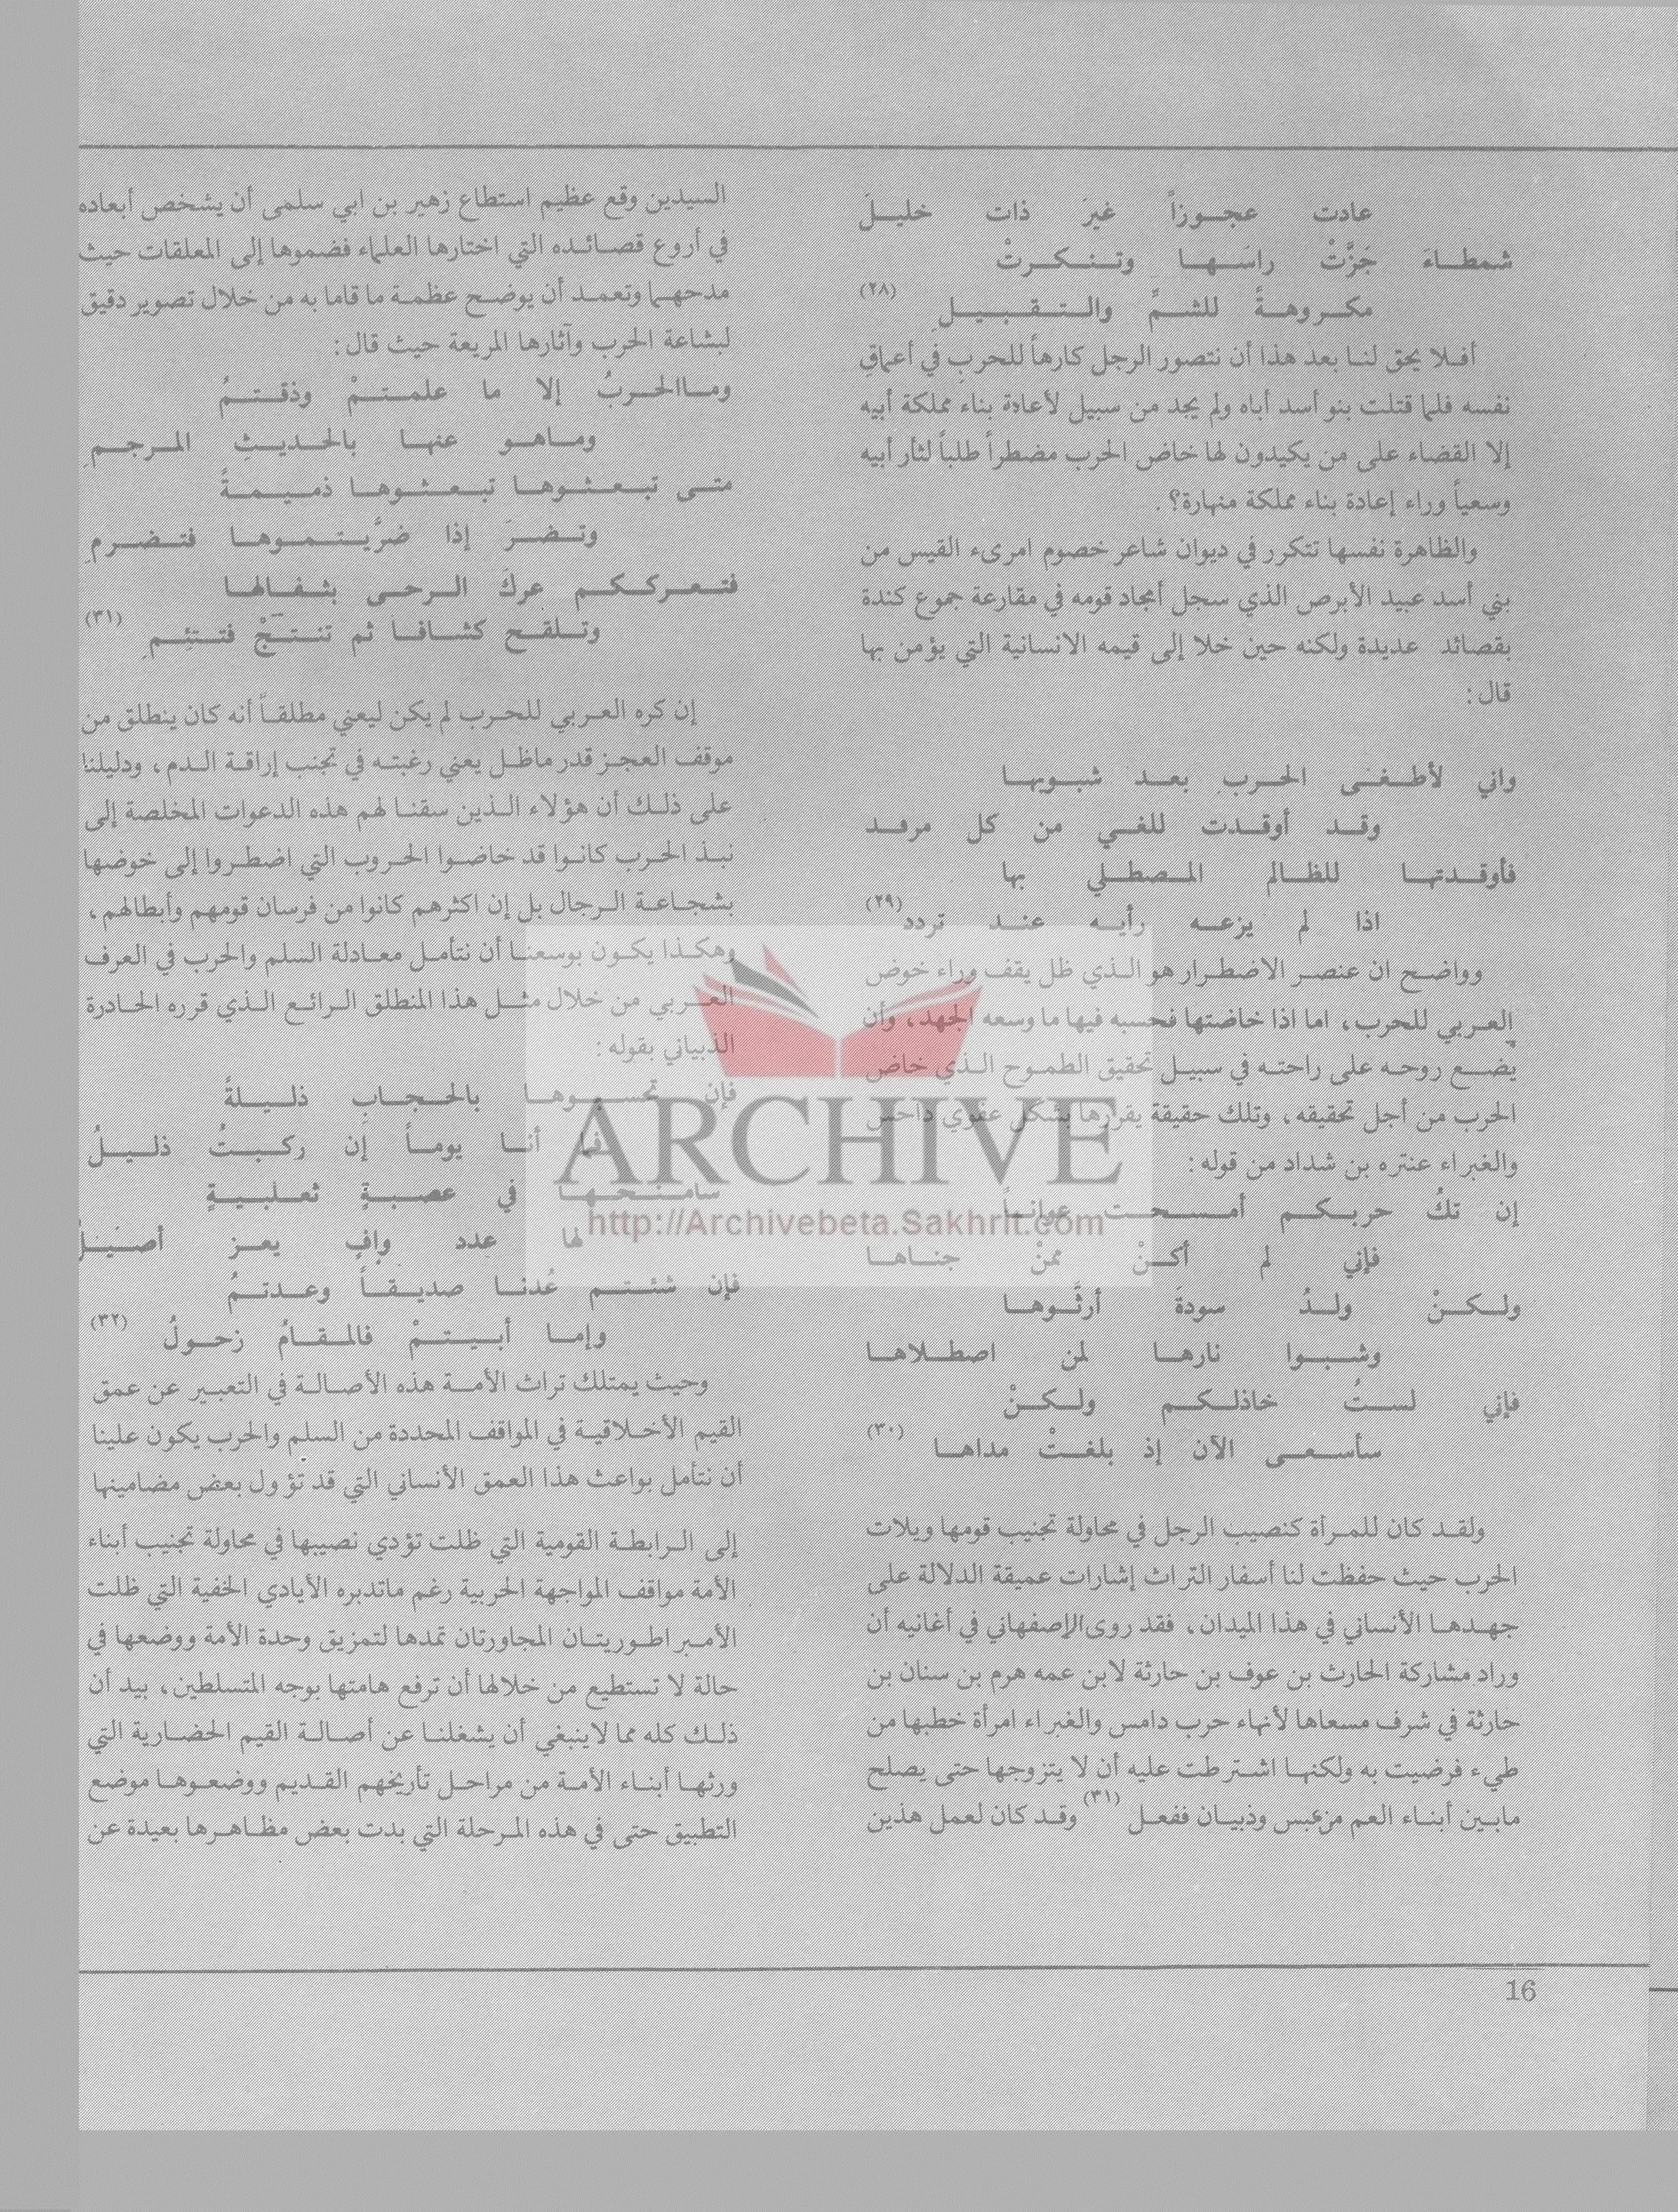 عادت عجوزاً غيرَ ذات خليلَ
شمطاءَ جَزَّتْ راسَها وتنكرتْ
مكروهةً للشمِّ والتقبيلِ (٢٨)
أفلا يحق لنا بعد هذا أن نتصور الرجل كارهاً للحربِ في أعماقِ
نفسه فلما قتلت بنو أسد أباه ولم يجد من سبيل لأعادة بناء مملكة أبيه
إلا القضاء على من يكيدون لها خاض الحرب مضطراً طلباً لثأر أبيه
وسعياً وراء إعادة بناء مملكة منهارة؟ .
والظاهرة نفسها تتكرر في ديوان شاعر خصوم امرىء القيس من
بني أسد عبيد الأبرص الذي سجل أمجاد قومه في مقارعة جموع كندة
بقصائد عديدة ولكنه حين خلا إلى قيمه الانسانية التي يؤمن بها
قال :
واني لأطغى الحرب بعد شبوبها
وقد أوقدت للغي من كل مرفد
فأوقدتها للظالم المصطلي بها
اذا لم يزعه رأيه عند تردد (٢٩)
وواضح ان عنصر الاضطرار هو الذي ظل يقف وراء خوض
العربي للحرب، اما اذا خاضتها فحسبه فيها ما وسعه الجهد، وأن
يضع روحه على راحته في سبيل تحقيق الطموح الذي خاض
الحرب من أجل تحقيقه، وتلك حقيقة يقررها بشكل عفوي داحس
والغبراء عنتره بن شداد من قوله :
إن تكُ حربكم أمسحت عواناً
فإني لم أكنْ ممنْ جناها
ولكنْ ولدُ سودةَ أرثَّوها
وشبوا نارها لمن اصطلاها
فإني لستُ خاذلكم ولكنْ
سأسعى الآن إذ بلغتْ مداها (٣٠)
ولقد كان للمرأة كنصيب الرجل في محاولة تجنيب قومها ويلات
الحرب حيث حفظت لنا أسفار التراث إشارات عميقة الدلالة على
جهدها الأنساني في هذا الميدان، فقد روى الإصفهاني في أغانيه أن
وراد مشاركة الحارث بن عوف بن حارثة لابن عمه هرم بن سنان بن
حارثة في شرف مسعاها لأنهاء حرب دامس والغبراء امرأة خطبها من
طيء فرضيت به ولكنها اشترطت عليه أن لا يتزوجها حتى يصلح
مابين أبناء العم من عبس وذبيان ففعل (٣١) وقد كان لعمل هذين
السيدين وقع عظيم استطاع زهير بن ابي سلمى أن يشخص أبعاده
في أروع قصائده التي اختارها العلماء فضموها إلى المعلقات حيث
مدحهما وتعمد أن يوضح عظمة ما قاما به من خلال تصوير دقيق
لبشاعة الحرب وآثارها المريعة حيث قال :
وماالحربُ إلا ما علمتمْ وذقتمُ
وماهو عنها بالحديثِ المرجمِ
متى تبعثوها تبعثوها ذميمةً
وتضرَ إذا ضرَّيتموها فتضرمِ
فتعرككم عركَ الرحى بثفالها
وتلقح كشافا ثم تنتجْ فتتئِمِ (٣١)
إن كره العربي للحرب لم يكن ليعني مطلقاً أنه كان ينطلق من
موقف العجز قدر ماظل يعني رغبته في تجنب إراقة الدم، ودليلنا
على ذلك أن هؤلاء الذين سقنا لهم هذه الدعوات المخلصة إلى
نبذ الحرب كانوا قد خاضوا الحروب التي اضطروا إلى خوضها
بشجاعة الرجال بل إن اكثرهم كانوا من فرسان قومهم وأبطالهم،
وهكذا يكون بوسعنا أن نتأمل معادلة السلم والحرب في العرف
العربي من خلال مثل هذا المنطلق الرائع الذي قرره الحادرة
الذبياني بقوله :
فإن تحسبوها بالحجابِ ذليلةً
فما أنا يوماً إن ركبتُ ذليلُ
سامنحها في عصبةٍ ثعلبيةٍ
لها عدد وافٍ يعز أصيلُ
فإن شئتم عُدنا صديقاً وعدتمُ
وإما أبيتمْ فالمقامُ زحولُ (٣٢)
وحيث يمتلك تراث الأمة هذه الأصالة في التعبير عن عمق
القيم الأخلاقية في المواقف المحددة من السلم والحرب يكون علينا
أن نتأمل بواعث هذا العمق الأنساني التي قد تؤول بعض مضامينها
إلى الرابطة القومية التي ظلت تؤدي نصيبها في محاولة تجنيب أبناء
الأمة مواقف المواجهة الحربية رغم ماتدبره الأيادي الخفية التي ظلت
الأمبراطوريتان المجاورتان تمدها لتمزيق وحدة الأمة ووضعها في
حالة لا تستطيع من خلالها أن ترفع هامتها بوجه المتسلطين، بيد أن
ذلك كله مما لاينبغي أن يشغلنا عن أصالة القيم الحضارية التي
ورثها أبناء الأمة من مراحل تأريخهم القديم ووضعوها موضع
التطبيق حتى في هذه المرحلة التي بدت بعض مظاهرها بعيدة عن
16
ARCHIVE
http://Archivebeta.Sakhrit.com